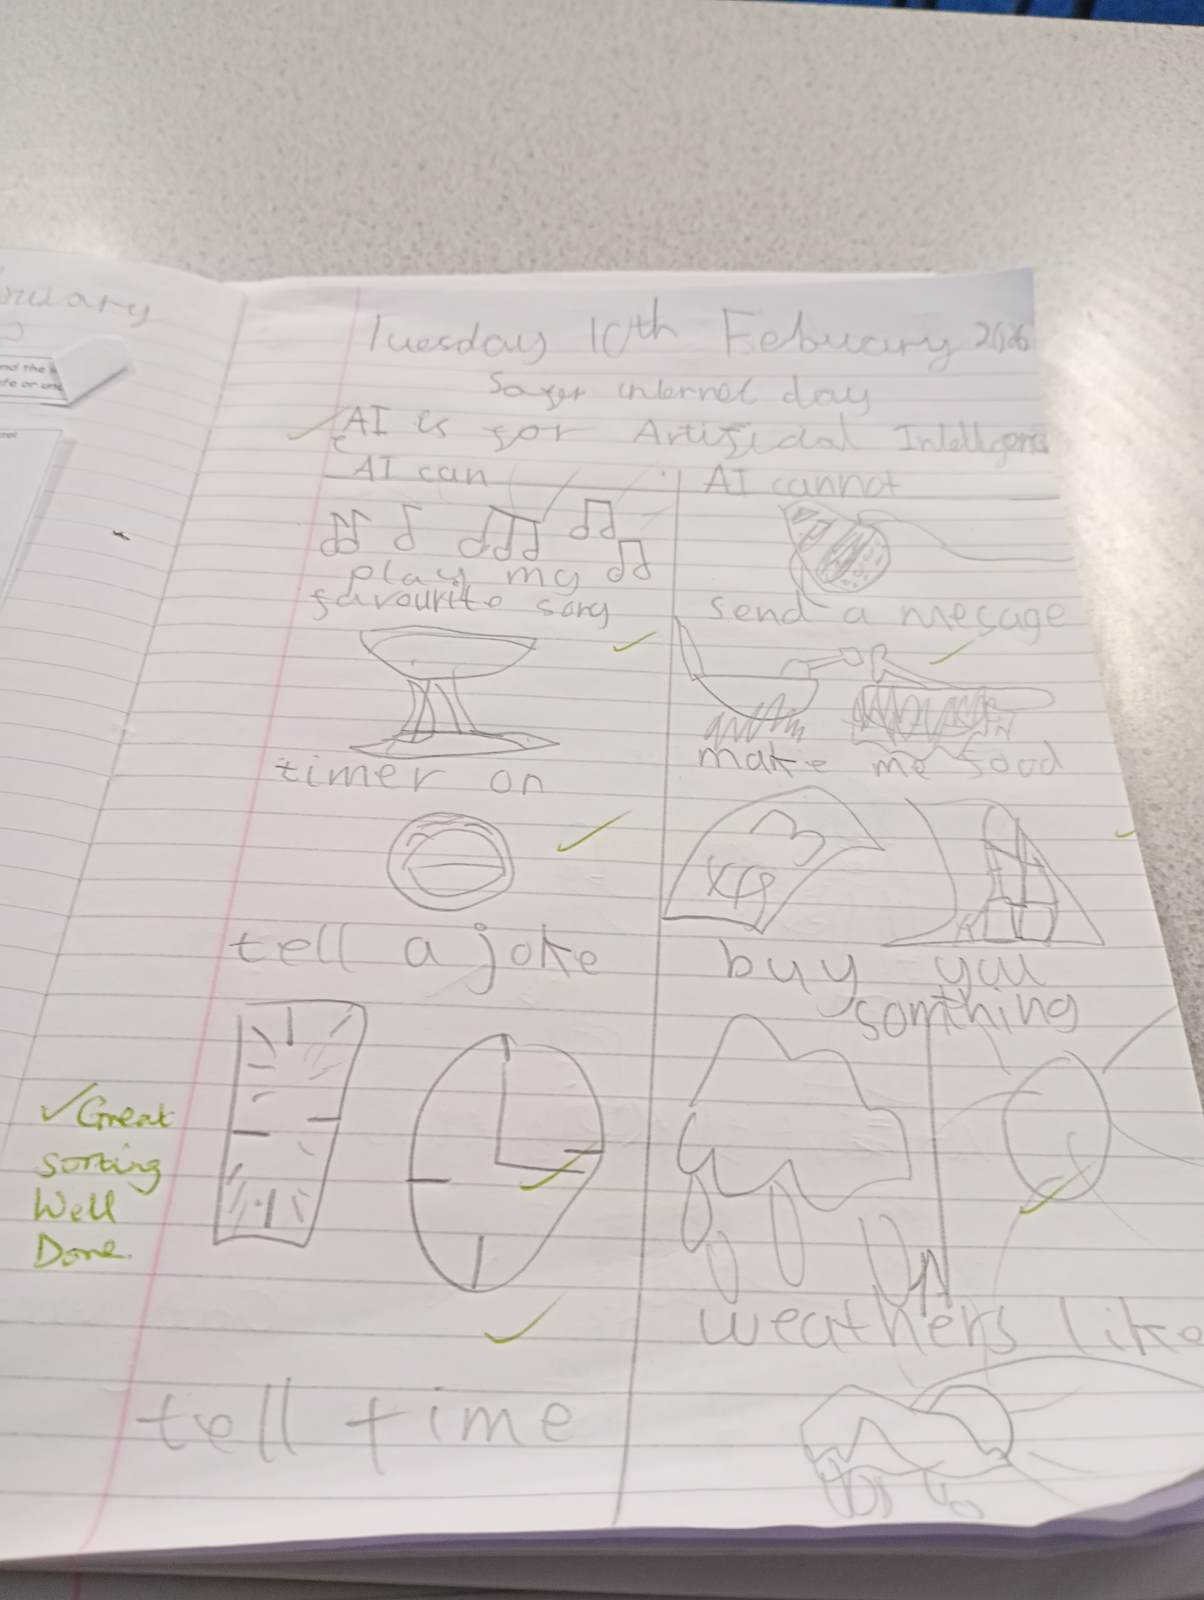 nd the
fe or uns
Tuesday 10th Febuary 2026
Safer internet day
AI is for Artificial Intelligens
AI can
play my
favourite song
timer on
tell a joke
tell time
AI cannot
send a mesage
make me food
buy you
somthing
weathers like
✓ Great
sorting
Well
Done.